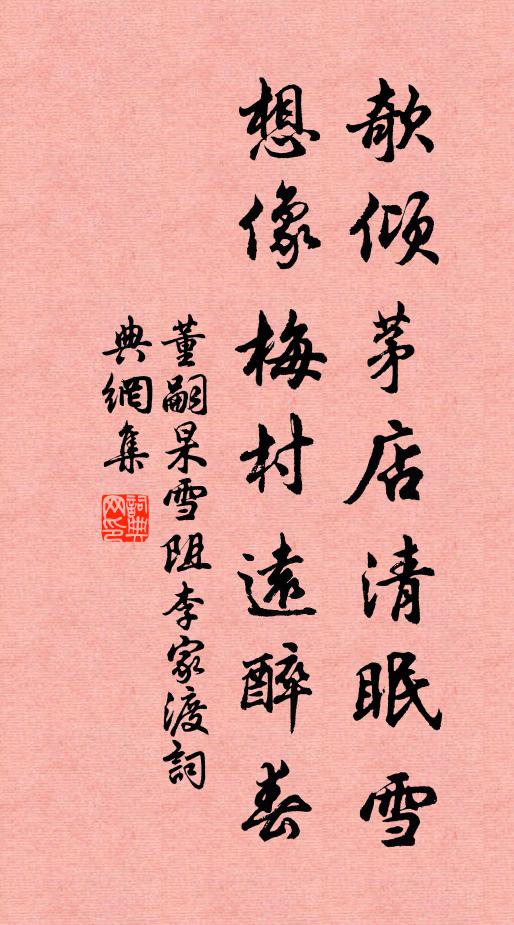 欹傾茅店清眠雪
想像梅村遠醉春
董嗣杲雪阻李家渡詞
典網集
詞典
网印